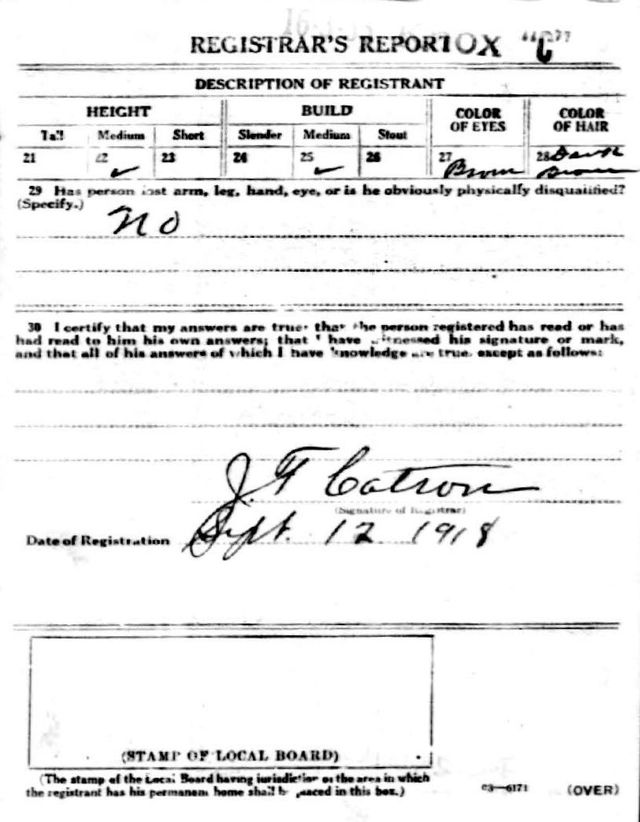 REGISTRAR'S REPORT OX "C"
DESCRIPTION OF REGISTRANT
HEIGHT BUILD COLOR OF EYES COLOR OF HAIR
Tall Medium Short Slender Medium Stout
21 22 ✓ 23 24 25 ✓ 26 27 Brown 28 Dark Brown
29 Has person lost arm, leg, hand, eye, or is he obviously physically disqualified?
(Specify.) No
30 I certify that my answers are true; that the person registered has read or has
had read to him his own answers; that I have witnessed his signature or mark,
and that all of his answers of which I have knowledge are true, except as follows:
J. F. Catron
(Signature of Registrar)
Date of Registration Sept. 12 1918
(STAMP OF LOCAL BOARD)
(The stamp of the Local Board having jurisdiction of the area in which
the registrant has his permanent home shall be placed in this box.)
03—6171 (OVER)